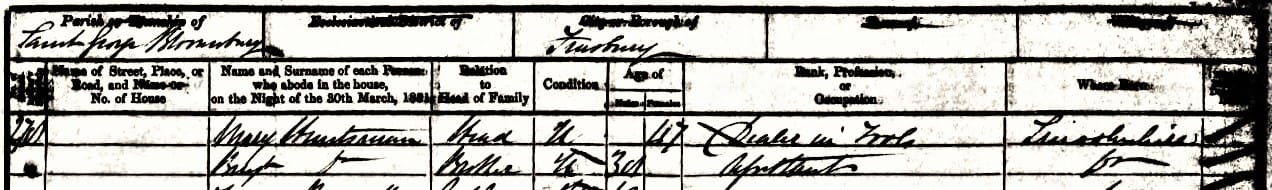 Parish or Township of Ecclesiastical District of City or Borough of
Saint George Bloomsbury Finsbury
Name of Street, Place, or Road, and Name or No. of House
Name and Surname of each Person who abode in the house, on the Night of the 30th March, 1851
Relation to Head of Family
Condition
Age of
Males Females
Rank, Profession, or Occupation
Where Born
Mary Huntsman Head U 47 Dealer in Tools Lincolnshire
Do Brother U 30 Assistant Do